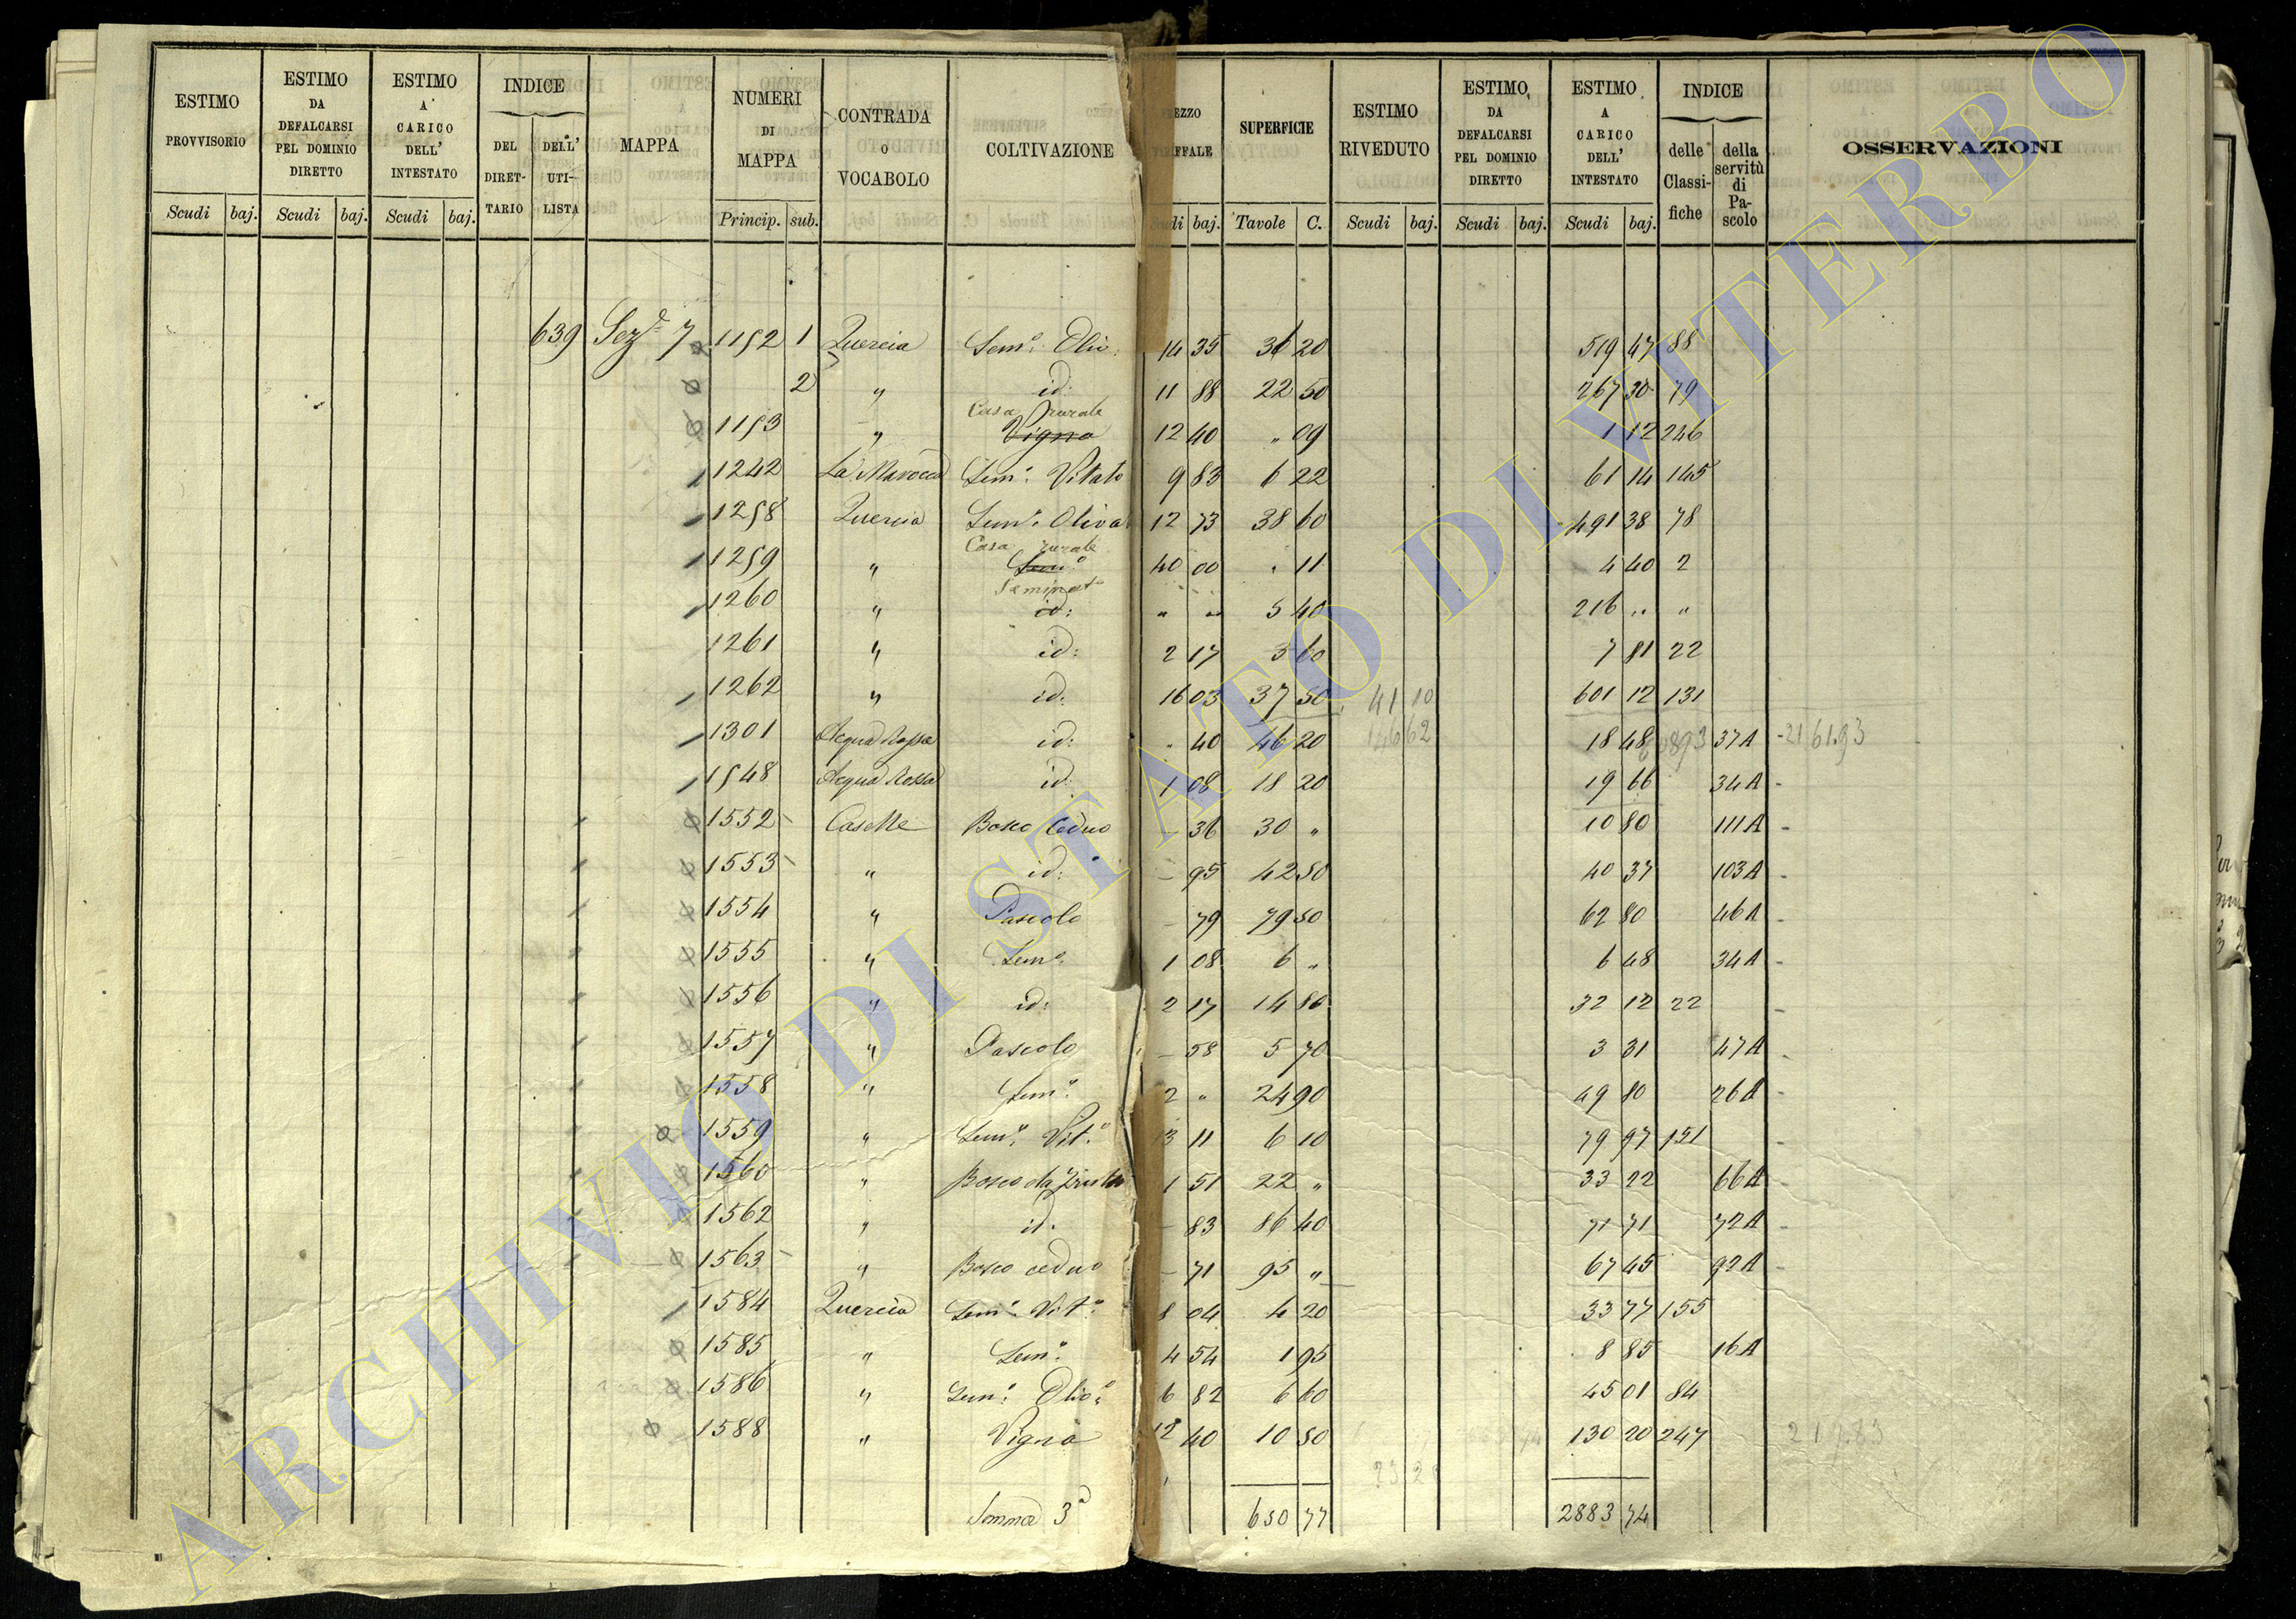 ESTIMO PROVVISORIO Scudi baj.
ESTIMO DA DEFALCARSI PEL DOMINIO DIRETTO Scudi baj.
ESTIMO A CARICO DELL' INTESTATO Scudi baj.
INDICE DEL DIRET- TARIO DELL' UTI- LISTA
MAPPA
NUMERI DI MAPPA Princip. sub.
CONTRADA O VOCABOLO
COLTIVAZIONE
EZZO FFALE di baj.
SUPERFICIE Tavole C.
ESTIMO RIVEDUTO Scudi baj.
ESTIMO DA DEFALCARSI PEL DOMINIO DIRETTO Scudi baj.
ESTIMO A CARICO DELL' INTESTATO Scudi baj.
INDICE delle Classi- fiche della servitù di Pa- scolo
OSSERVAZIONI
639 Sez.e 7 1152 1 Quercia Sem.o Oliv. 14 35 36 20 519 47 88
2 " id: 11 88 22 50 267 30 79
Casa rurale
1153 " Vigna 12 40 " 09 1 12 246
1242 La Marocca Sem.o Vitato 9 83 6 22 61 14 145
1258 Quercia Sem.o Oliva 12 73 38 60 491 38 78
Casa rurale
1259 " Sem.o 40 00 " 11 4 40 2
Seminat.o
1260 " id: " " 5 40 216 " "
1261 " id: 2 17 3 60 7 81 22
1262 " id: 16 03 37 50 41 10 601 12 131
1301 Acqua Rossa id: " 40 46 20 146 62 18 48 37A 2161.93
1548 Acqua Rossa id: 1 08 18 20 19 66 34A -
1552 Caselle Bosco Ceduo - 36 30 " 10 80 111A -
1553 " id: - 95 42 50 40 37 103A -
1554 " Pascolo - 79 79 50 62 80 46A -
1555 " Sem.o 1 08 6 " 6 48 34A -
1556 " id: 2 17 14 80 32 12 22 -
1557 " Pascolo - 58 5 70 3 31 47A -
1558 " Sem.o 2 " 24 90 49 80 26A -
1559 " Sem.o Vit.o 13 11 6 10 79 97 151 -
1560 " Bosco da frutto 1 51 22 " 33 22 66A -
1562 " id. - 83 86 40 71 71 72A -
1563 " Bosco ceduo - 71 95 " 67 45 92A -
1584 Quercia Sem.o Vit.o 8 04 4 20 33 77 155
1585 " Sem.o 4 54 1 95 8 85 16A
1586 " Sem.o Oliv.o 6 82 6 60 45 01 84
1588 " Vigna 12 40 10 50 130 20 247
Somma 3a 650 77 2883 74
ARCHIVIO DI STATO DI VITERBO